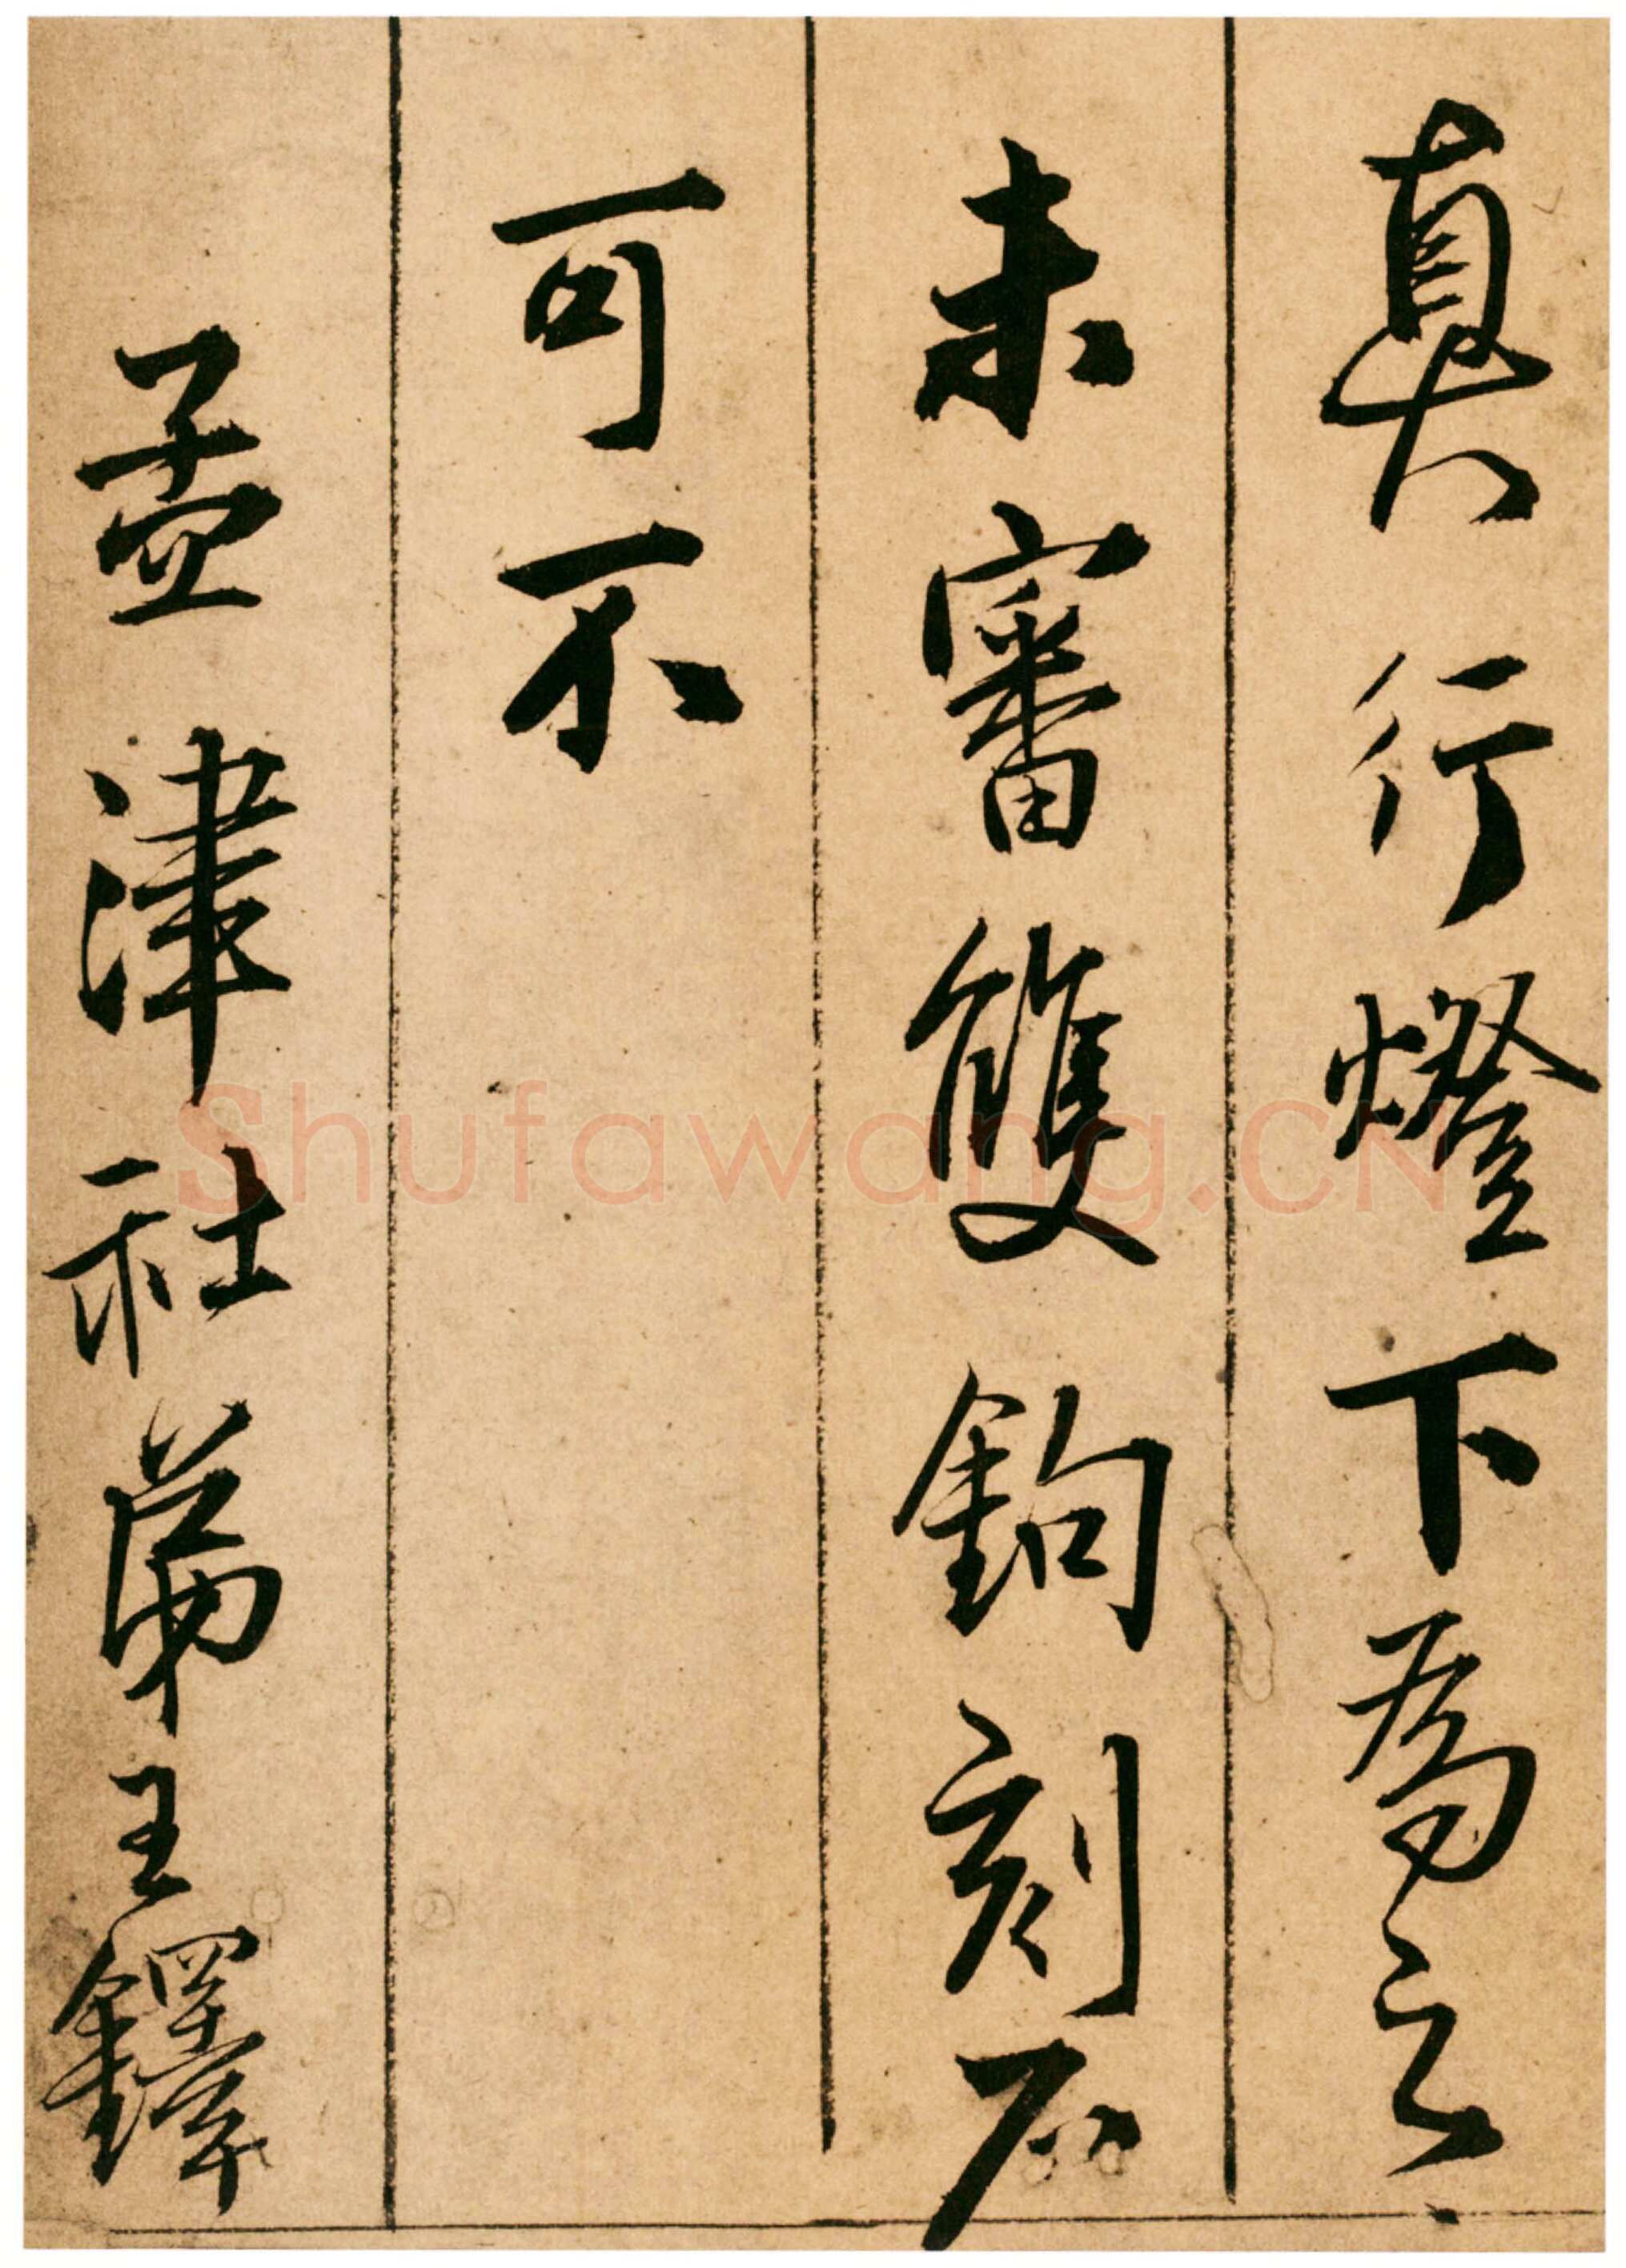 真行燈下為之
未審雙鉤刻石
可不
孟津社弟王鐸
Shufawang.CN